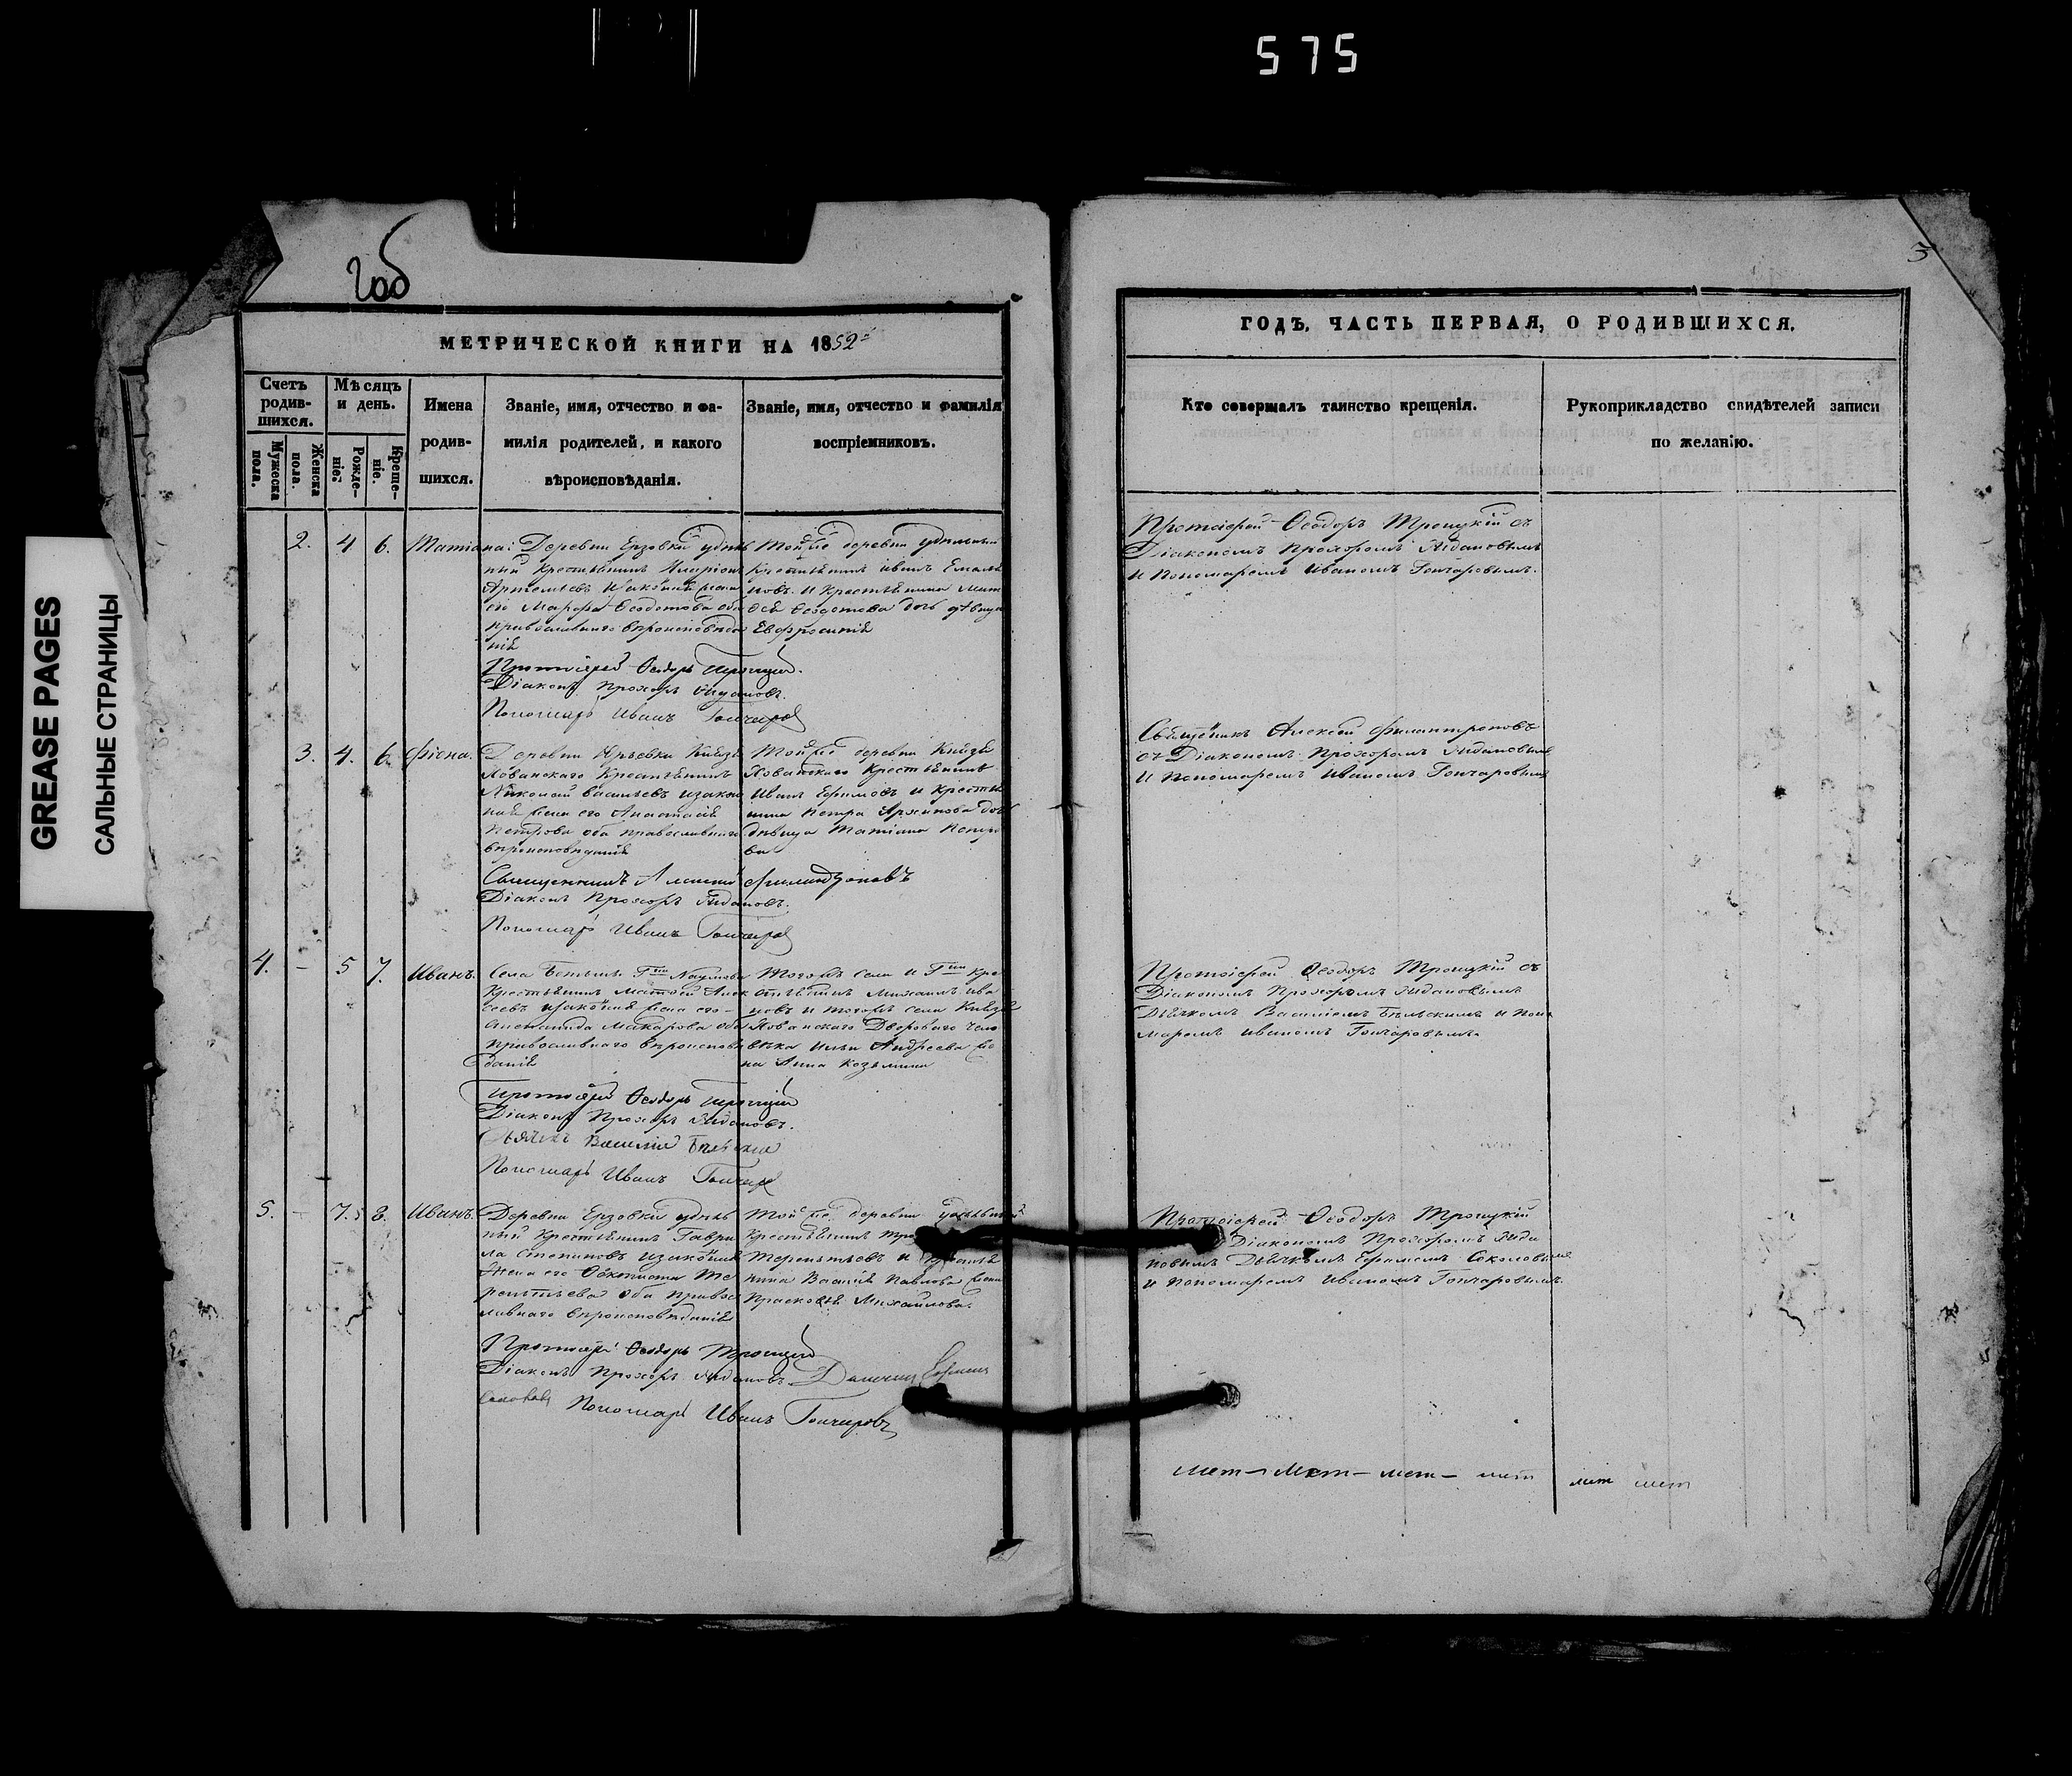 575
GREASE PAGES
САЛЬНЫЕ СТРАНИЦЫ
2об
МЕТРИЧЕСКОЙ КНИГИ НА 1852й
Счетъ родив-шихся.
Мужеска пола.
Женска пола.
Мѣсяцъ и день.
Рожде-ніе.
Креще-ніе.
Имена
родив-
шихся.
Званіе, имя, отчество и фа-
милія родителей, и какого
вѣроисповѣданія.
Званіе, имя, отчество и фамилія
воспріемниковъ.
2. 4 6. Татіана:
Деревни Ерзовки удѣль
ный крестьянинъ
Артемьевъ и законная жена
его Марфа Ѳеодотова оба
православнаго вѣроисповѣда
нія
Протоіерей Ѳеодоръ Троицкій.
Діаконъ Прохоръ
Пономарь Иванъ Гончаровъ
Той же деревни удѣльный
крестьянинъ Иванъ Емелья
новъ и крестьянина
Ѳеодотова дочь дѣвица
Евфросинія
3. 4. 6. Фіона.
Деревни Юрьевки Князя
Хованскаго крестьянинъ
Николай Васильевъ и закон
ная жена его Анастасія
Петрова оба православнаго
вѣроисповѣданія
Священникъ Алексій Филантроповъ
Діаконъ Прохоръ
Пономарь Иванъ Гончаровъ
Той же деревни Князя
Хованскаго крестьянинъ
Иванъ Ефимовъ и крестья
нина Петра Архипова дочь
дѣвица Татіана Петро
ва
4. – 5 7. Иванъ.
Села Г-на Наумова
крестьянинъ Матѳей Алек
сѣевъ и законная жена его
Степанида Макарова оба
православнаго вѣроисповѣ
данія
Протоіерей Ѳеодоръ Троицкій
Діаконъ Прохоръ
Дьячекъ Василій Бѣльскій
Пономарь Иванъ Гончаровъ
Тогожъ села и Г-на кре
стьянинъ Михаилъ Ива
новъ и тогожъ села Князя
Хованскаго двороваго чело
вѣка Ильи Андреева же
на Анна Козьмина
5. – 7. 8. Иванъ.
Деревни Ерзовки удѣль
ный крестьянинъ Гаври
ла Степановъ и законная
жена его Ѳеоктиста Те
рентьева оба правос
лавнаго вѣроисповѣданія
Протоіерей Ѳеодоръ Троицкій
Діаконъ Прохоръ
Соколовъ Пономарь Иванъ Гончаровъ
Той же деревни удѣльный
крестьянинъ
Терентьевъ и крестья
нина Василія Павлова жена
Прасковья Михайлова.
3
ГОДЪ, ЧАСТЬ ПЕРВАЯ, О РОДИВШИХСЯ.
Кто совершалъ таинство крещенія.
Рукоприкладство свидѣтелей записи
по желанію.
Протоіерей Ѳеодоръ Троицкій съ
Діакономъ Прохоромъ
и Пономаремъ Иваномъ Гончаровымъ.
Священникъ Алексій Филантроповъ
съ Діакономъ Прохоромъ
и Пономаремъ Иваномъ Гончаровымъ
Протоіерей Ѳеодоръ Троицкій съ
Діакономъ Прохоромъ
Дьячкомъ Василіемъ Бѣльскимъ и Поно
маремъ Иваномъ Гончаровымъ.
Протоіерей Ѳеодоръ Троицкій
Діакономъ Прохоромъ
Дьячкомъ Соколовымъ
и Пономаремъ Иваномъ Гончаровымъ.